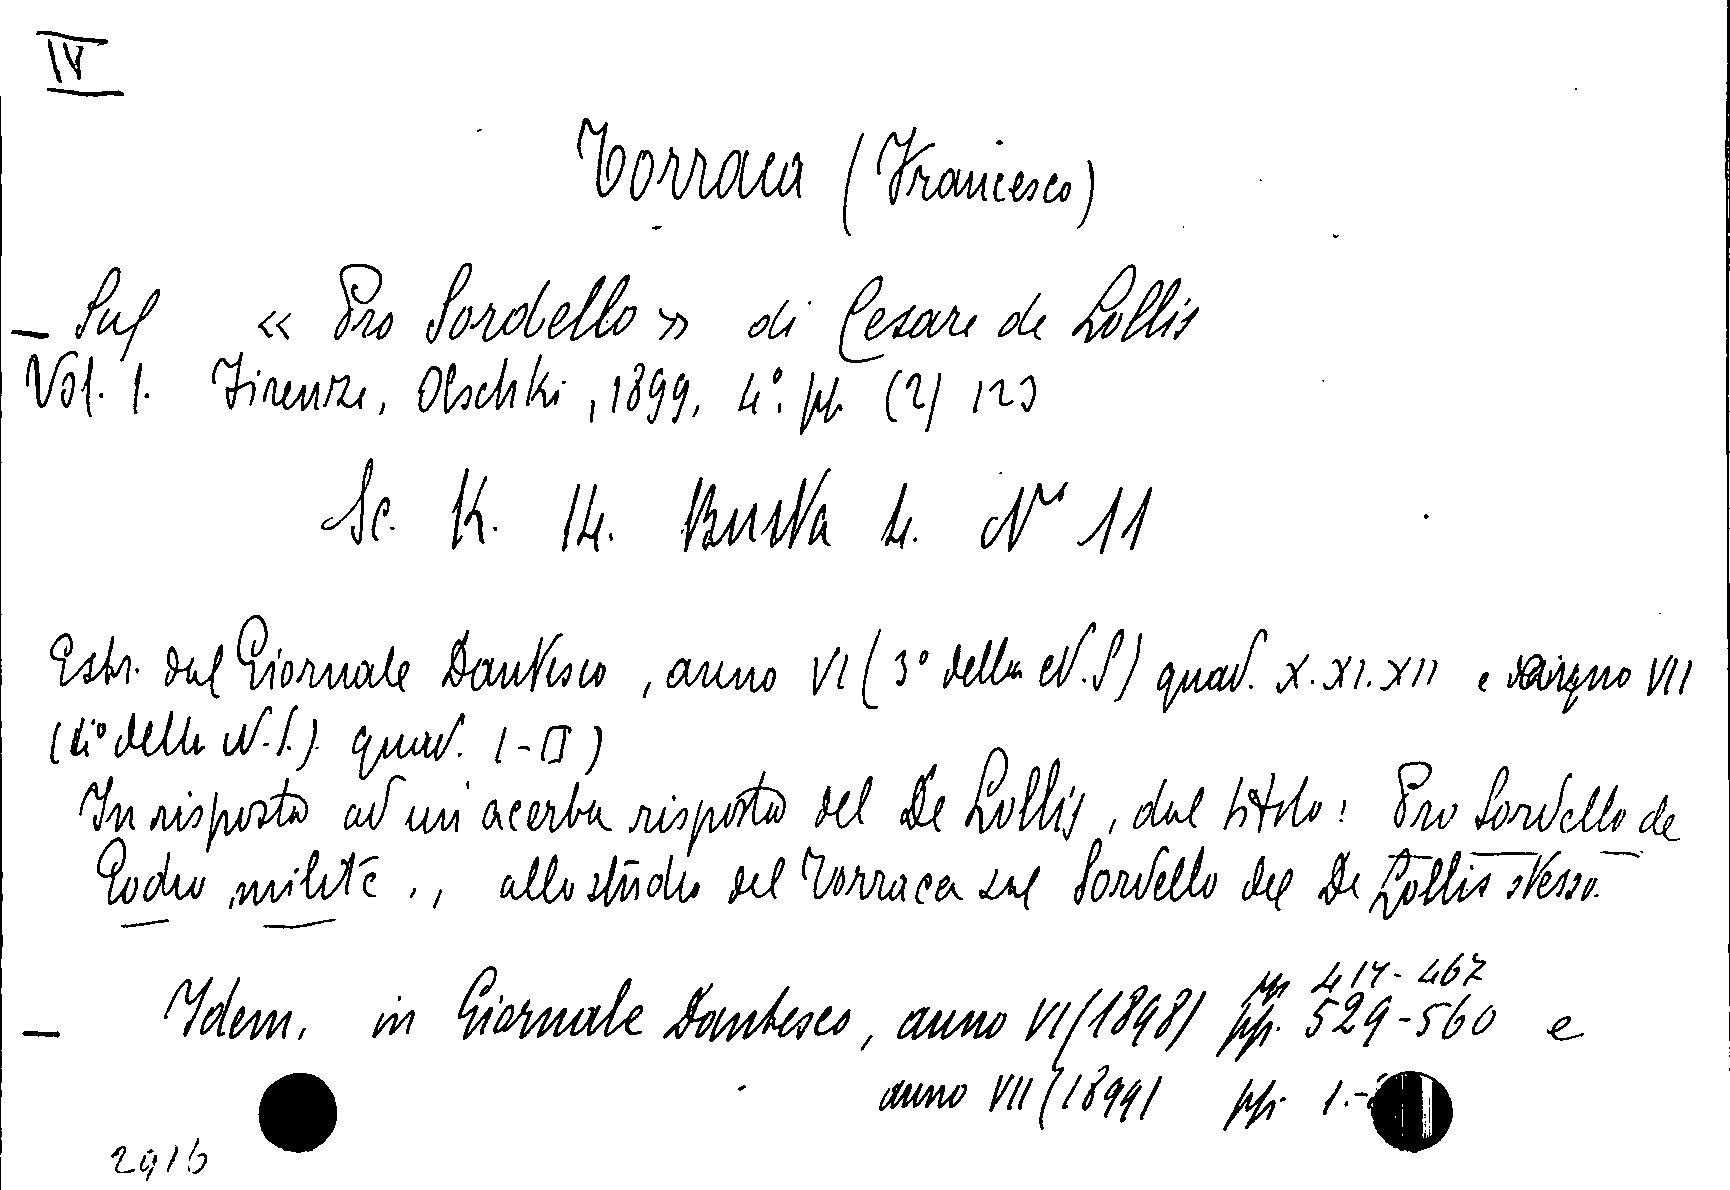 IV
Torraca (Francesco)
— Sul « Pro Sordello » di Cesare de Lollis
Vol. 1. Firenze, Olschki, 1899. 4°. pp. (2) 123
Sc. K. 14. Busta 4. N° 11
Estr. dal Giornale Dantesco, anno VI (3° della N.S) quad. X. XI. XII e anno VII
(4° della N.S.) quad. I-II)
In risposta ad un acerba risposta del De Lollis, dal titolo: Pro Sordello de
Godio milite ., allo studio del Torraca sul Sordello del De Lollis stesso.
pp 417-467
— Idem, in Giornale Dantesco, anno VI (1898) pp. 529-560 e
anno VII (1899) pp. 1.-
2916